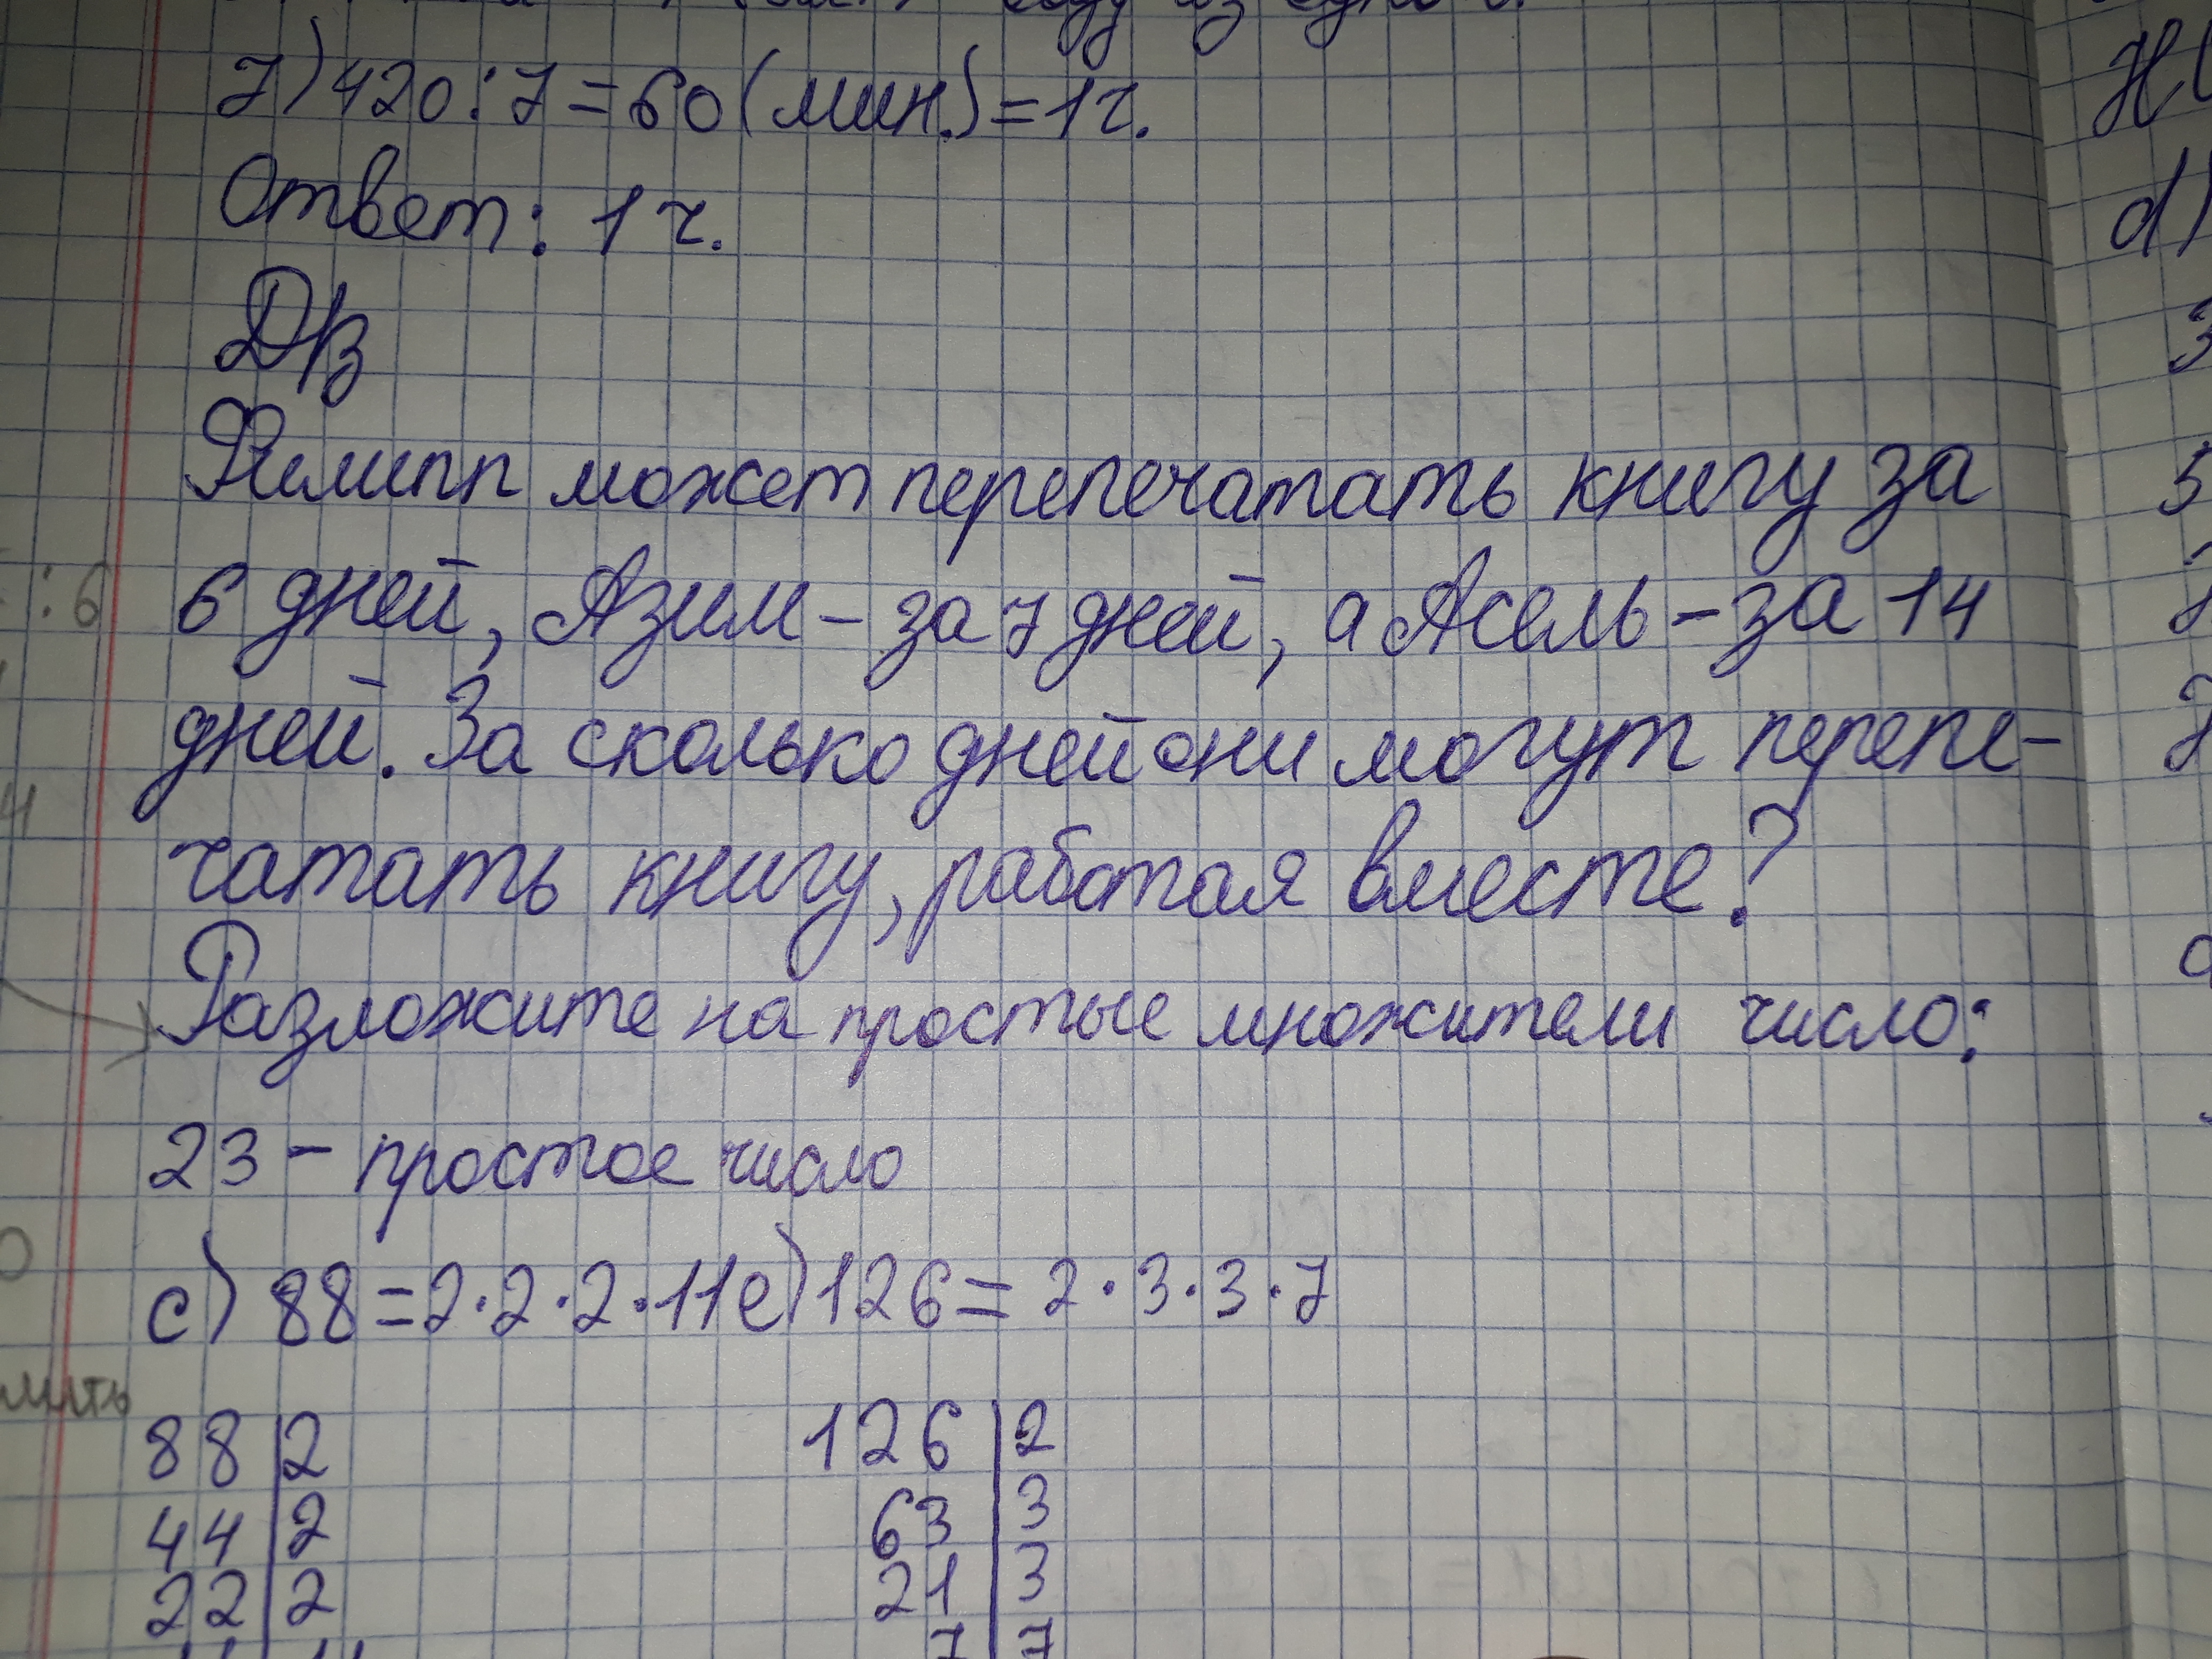 7) 420:7=60(мин.)=1ч.
Ответ: 1 ч.
Д/з
Филипп может перепечатать книгу за
6 дней, Азим – за 7 дней, а Асель – за 14
дней. За сколько дней они могут перепе-
чатать книгу, работая вместе?
Разложите на простые множители число:
23 – простое число
c) 88=2·2·2·11 e) 126=2·3·3·7
88|2 126|2
44|2 63|3
22|2 21|3
11|11 7|7
:6